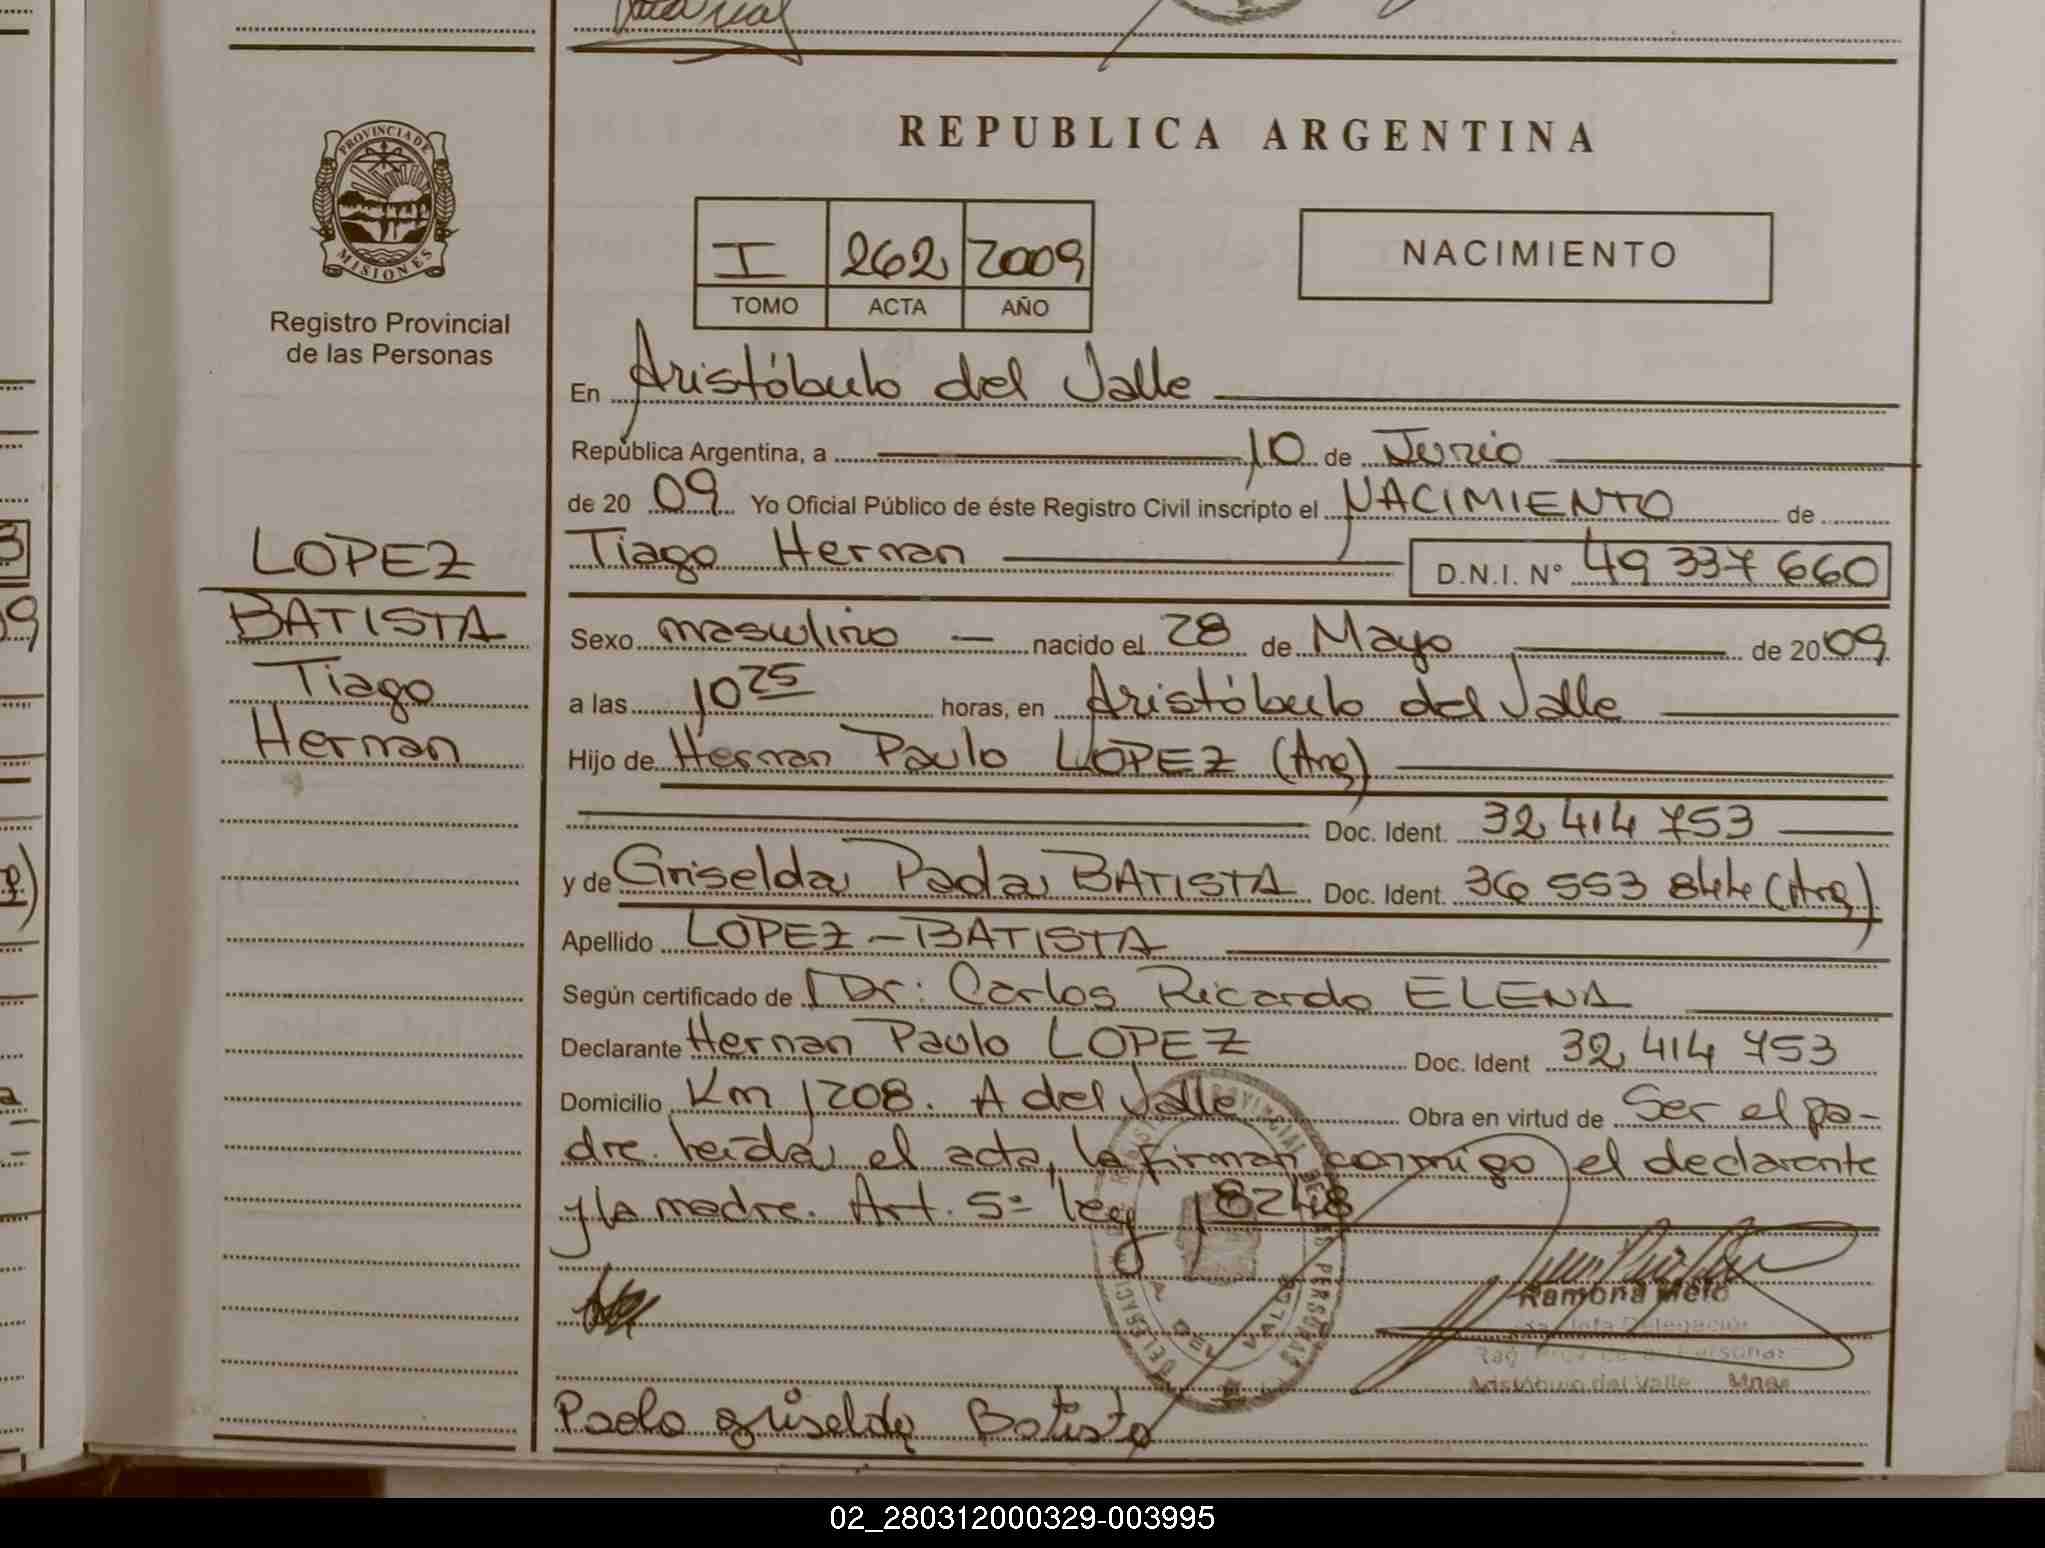 PROVINCIA DE
MISIONES
Registro Provincial
de las Personas
LOPEZ
BATISTA
Tiago
Hernan
REPUBLICA ARGENTINA
I 262 2009
TOMO ACTA AÑO
NACIMIENTO
En Aristóbulo del Valle
República Argentina, a 10 de Junio
de 2009 Yo Oficial Público de éste Registro Civil inscripto el NACIMIENTO de
Tiago Hernan D.N.I. Nº 49 337 660
Sexo masculino — nacido el 28 de Mayo de 2009
a las 10 25 horas, en Aristóbulo del Valle
Hijo de Hernan Paulo LOPEZ (Arg)
Doc. Ident. 32 414 753
y de Griselda Paola BATISTA Doc. Ident. 36 553 844 (Arg)
Apellido LOPEZ - BATISTA
Según certificado de Dr: Carlos Ricardo ELENA
Declarante Hernan Paulo LOPEZ Doc. Ident 32 414 753
Domicilio Km 1208. A del Valle Obra en virtud de Ser el pa-
dre. leída el acta, la firman conmigo el declarante
y la madre. Art. 5º ley 18248
Ramona Melo
Aristóbulo del Valle Mnes
Paola griselda Batista
02_280312000329-003995